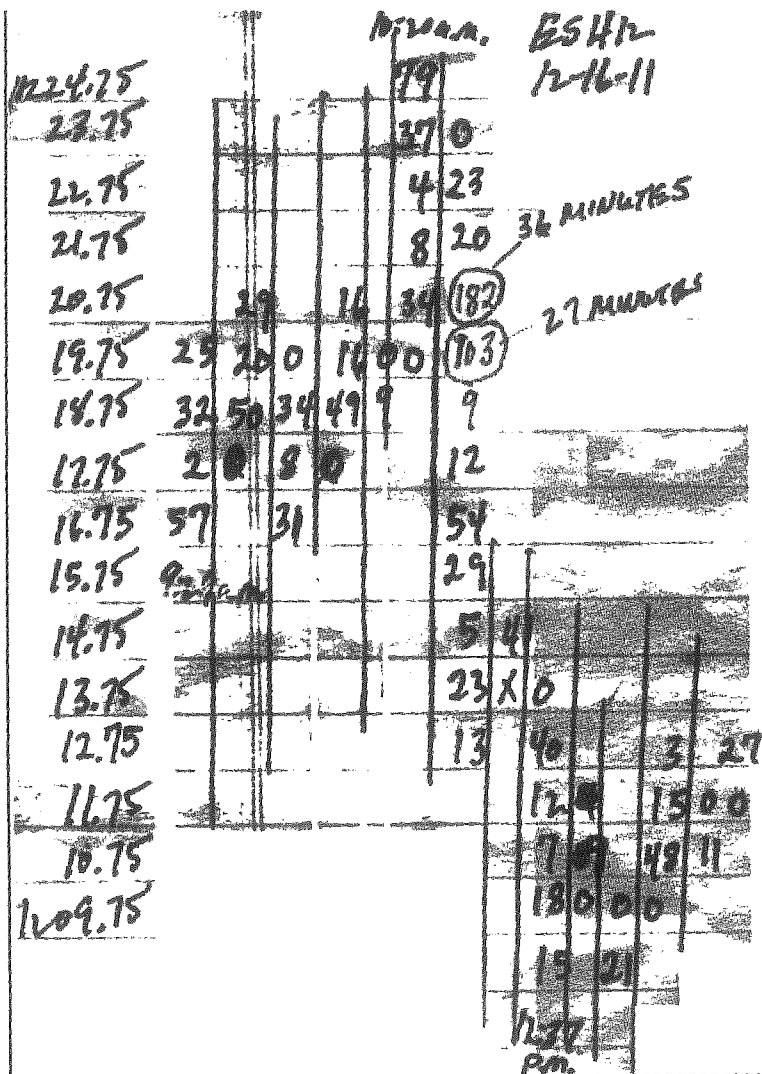 10:20 a.m. ES4 1/2
79 12-16-11
1224.75
23.75 37 0
22.75 4 23
36 MINUTES
21.75 8 20
20.75 29 16 34 182
27 MINUTES
19.75 25 20 0 16 0 0 103
18.75 32 50 34 49 9 9
17.75 2 0 8 0 12
16.75 57 31 54
15.75 29
14.75 5 41
13.75 23 X 0
12.75 13 40 3 27
11.75 12 15 0 0
10.75 7 48 11
1209.75 18 0 0 0
15 21
12:37
P.M.